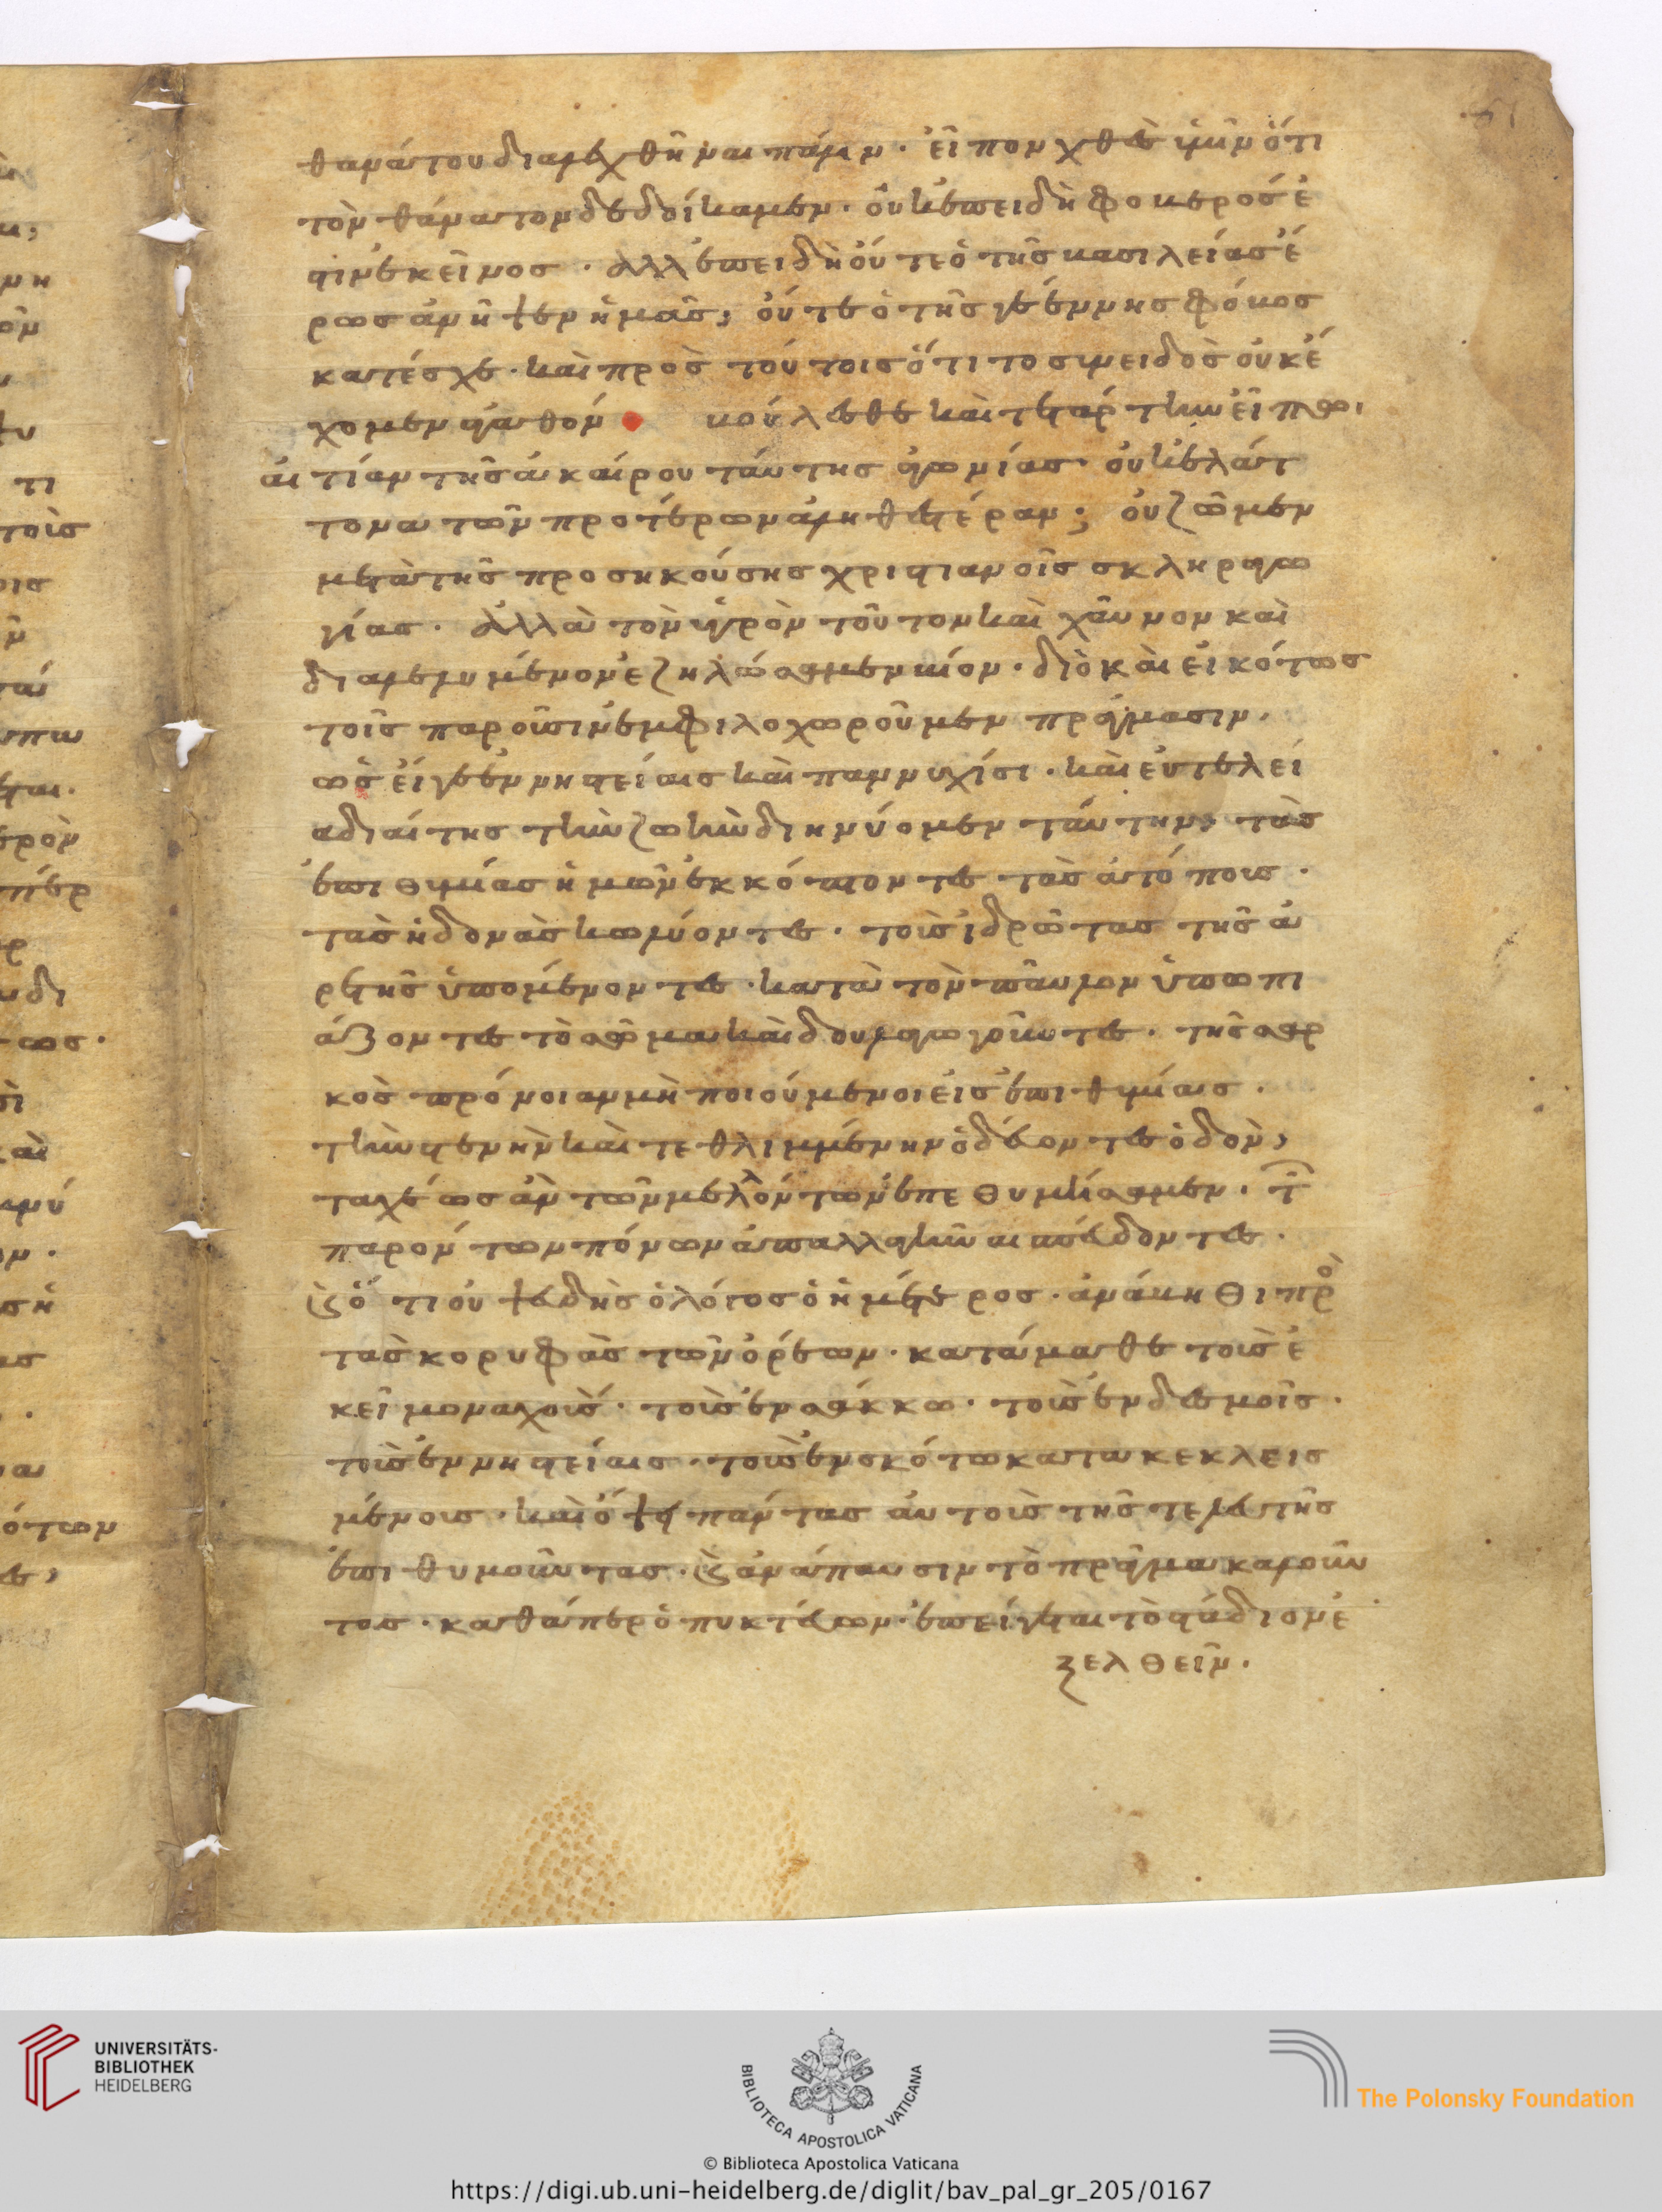 θανάτου διαλεχθῆναι πάλιν. εἶπον χθὲς ὑμῖν ὅτι
τὸν θάνατον δεδοίκαμεν. οὐκ ἐπειδὴ φοβερός ἐ
στιν ἐκεῖνος. ἀλλ ἐπειδὴ οὔτε ὁ τῆς βασιλείας ἔ
ρως ἀνῆψεν ἡμᾶς, οὔτε ὁ τῆς γεέννης φόβος
κατέσχε. καὶ πρὸς τούτοις ὅτι τὸ συνειδὸς οὐκ ἔ
χομεν ἀγαθόν βούλεσθε καὶ τετάρτην εἴπω.
αἰτίαν τῆς ἀκαίρου ταύτης ἀγωνίας. οὐκ ἐλάτ
τονα τῶν προτέρων ἀληθεστέραν; οὐ ζῶμεν
μετὰ τῆς προσηκούσης χριστιανοῖς σκληραγω
γίας. ἀλλὰ τὸν ὑγρὸν τοῦτον καὶ χαῦνον καὶ
διαλελυμένον ἐζηλώσαμεν βίον. διὸ καὶ εἰκότως
τοῖς παροῦσιν ἐμφιλοχωροῦμεν πράγμασιν.
ὡς εἴγε ἐν νηστείαις καὶ παννυχίσι. καὶ εὐτελεί
α διαίτης τὴν ζωὴν διηνύομεν ταύτην, τὰς
ἐπιθυμίας ἡμῶν ἐκκόπτοντες τὰς ἀτόπους.
τὰς ἡδονὰς κωλύοντες. τοὺς ἱδρῶτας τῆς ἀ
ρετῆς ὑπομένοντες. κατὰ τὸν παῦλον ὑπωπι
άζοντες τὸ σῶμα καὶ δουλαγωγοῦντες. τῆς σαρ
κὸς πρόνοιαν μὴ ποιούμενοι εἰς ἐπιθυμίας.
τὴν στενὴν καὶ τεθλιμμένην ὁδεύοντες ὁδὸν,
ταχέως ἂν τῶν μελλόντων ἐπεθυμήσαμεν. τ
παρόντων πόνων ἀπαλλαγῆναι σπεύδοντες.
ϗ ὅτι οὐ ψευδὴς ὁ λόγος ὁ ἡμέτερος. ἀνάβηθι πρὸ
τὰς κορυφὰς τῶν ὀρέων. κατάμαθε τοὺς ἐ
κεῖ μοναχοὺς. τοὺς ἐν σάκκω. τοὺς ἐν δεσμοῖς.
τοὺς ἐν νηστείαις. τοὺς ἐν σκότω κατακεκλεισ
μένους. καὶ ὄψει πάντας αὐτοὺς τῆς τελευτῆς
ἐπιθυμοῦντας. ϗ ἀνάπαυσιν τὸ πρᾶγμα καλοῦν
τας. καθάπερ ὁ πυκτεύων. ἐπείγεται τὸ στάδιον ἐ
ξελθεῖν.
UNIVERSITÄTS-
BIBLIOTHEK
HEIDELBERG
BIBLIOTECA APOSTOLICA VATICANA
The Polonsky Foundation
© Biblioteca Apostolica Vaticana
https://digi.ub.uni-heidelberg.de/diglit/bav_pal_gr_205/0167